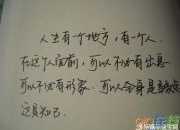 人生有个地方，有一个人．
在这个人面前，可以不必有出息
可以不必有形象，可以全身是
知己．